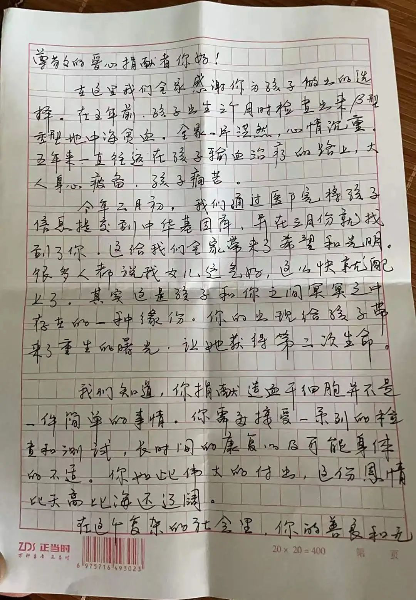 尊敬的爱心捐献者你好！
在这里我们全家感谢你为孩子做出的选
择。在五年前，孩子出生三个月时检查出来β型
重型地中海贫血。全家一片茫然，心情沉重。
五年来一直往返在孩子输血治病的路上，大
人身心疲备，孩子痛苦。
今年二月初，我们通过医院将孩子
信息提交到中华基因库，并在三月份就找
到了你。这给我们全家带来了希望和光明。
很多人都说我女儿运气好，这么快就配
上了。其实这是孩子和你之间冥冥之中
存在的一种缘份。你的出现给孩子带
来了重生的曙光，让她获得第二次生命。
我们知道，你捐献造血干细胞并不是
一件简单的事情。你需要接受一系列的检
查和测试，长时间的康复以及可能身体
的不适。你如此伟大的付出，这份恩情
比天高比海还辽阔。
在这个复杂的社会里，你的善良和无
ZDS 正当时
6 975716 493023
20×20=400 第 页